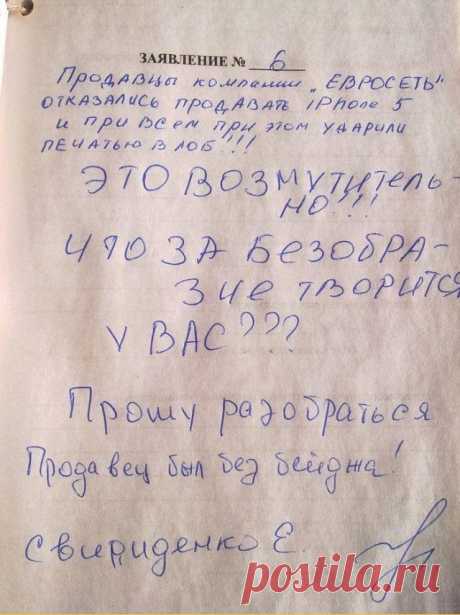 ЗАЯВЛЕНИЕ № 6
Продавцы компании „ЕВРОСЕТЬ"
отказались продавать iPhone 5
и при всем при этом ударили
печатью в лоб!!!
ЭТО ВОЗМУТИТЕЛЬ-
НО!!!
ЧТО ЗА БЕЗОБРА-
ЗИЕ ТВОРИТСЯ
У ВАС???
Прошу разобраться
Продавец был без бейджа!
Свириденко Е.
postila.ru